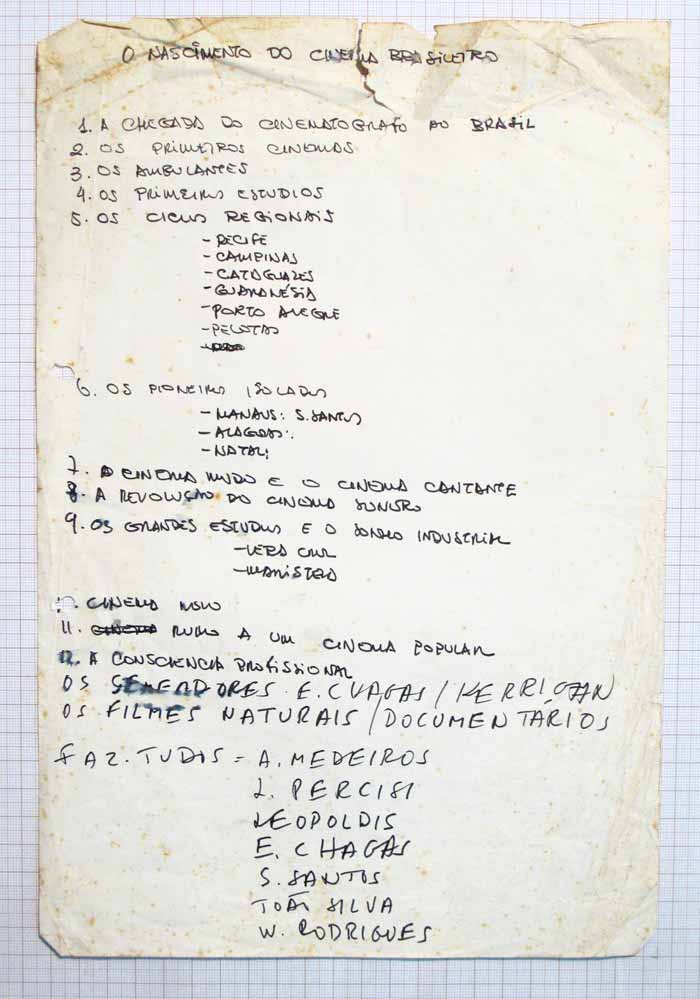 O NASCIMENTO DO CINEMA BRASILEIRO
1. A CHEGADA DO CINEMATOGRAFO AO BRASIL
2. OS PRIMEIROS CINEMAS
3. OS AMBULANTES
4. OS PRIMEIROS ESTUDIOS
5. OS CICLOS REGIONAIS
- RECIFE
- CAMPINAS
- CATAGUAZES
- GUARANÉSIA
- PORTO ALEGRE
- PELOTAS
6. OS PIONEIROS ISOLADOS
- MANAUS: S. SANTOS
- ALAGOAS:
- NATAL:
7. O CINEMA MUDO E O CINEMA CANTANTE
8. A REVOLUÇÃO DO CINEMA SONORO
9. OS GRANDES ESTUDIOS E O SONHO INDUSTRIAL
- VERA CRUZ
- MARISTELA
10. CINEMA NOVO
11. RUMO A UM CINEMA POPULAR
12. A CONSCIENCIA PROFISSIONAL
OS SEMEADORES E. CHAGAS / KERRIGAN
OS FILMES NATURAIS / DOCUMENTÁRIOS
FAZ. TUDIS = A. MEDEIROS
L. PERCISI
LEOPOLDIS
E. CHAGAS
S. SANTOS
JOÃO SILVA
W. RODRIGUES